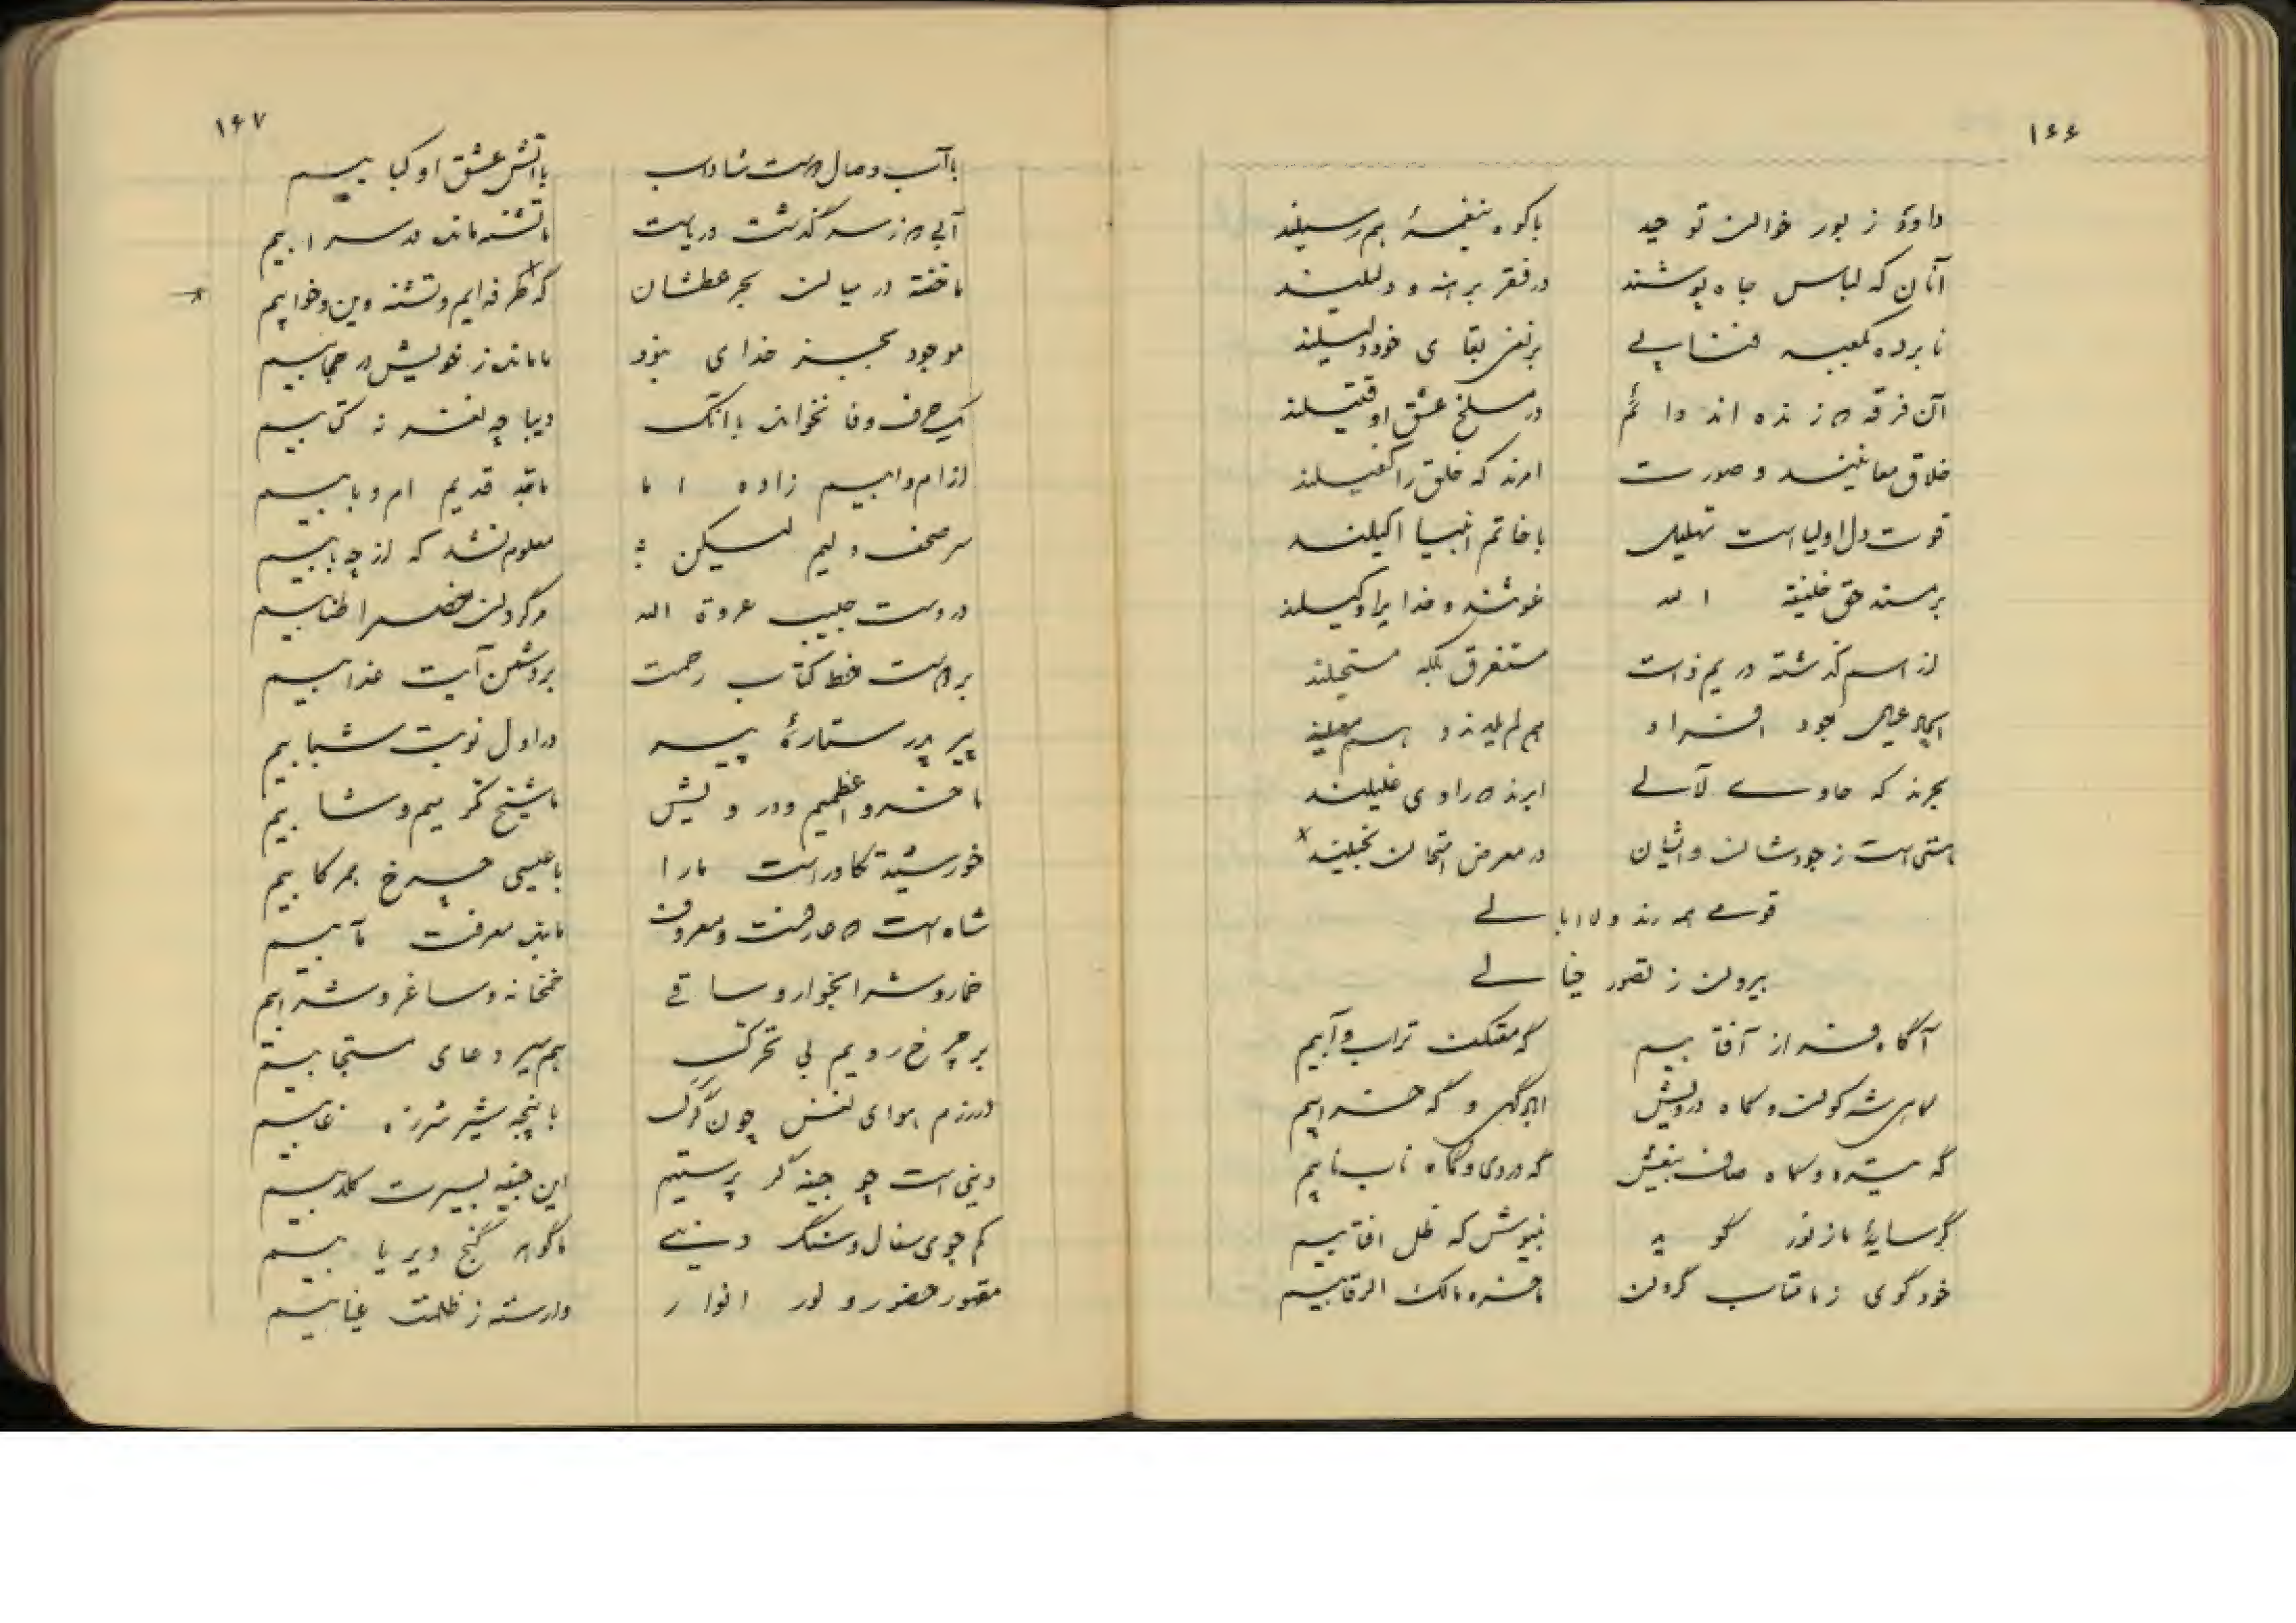 ۱۶۶
داود زبور خوان توحید
با کوه بنغمهٔ هم رسیلند
آنان که لباس جاه پوشند
در فقر برهنه و دلیلند
نابرده بکعبه فنا پی
بر نفی بقای خود دلیلند
آن فرقه که زنده اند دائم
در مسلخ عشق او قتیلند
خلاق معانیند و صورت
امرند که خلق را کفیلند
قوت دل اولیاست تهلیل
با خاتم انبیا اکیلند
بر مسند حق خلیفة الله
غوثند و خدایرا وکیلند
از اسم گذشته در یم ذات
مستغرق بلکه مستحیلند
ایجاد عیال جود افراد
هم لم یلدند و
بحرند که حاوی لآلی
ابرند که راوی غلیلند
هستی است ز جودشان و اینان
در معرض امتحان بخیلند
قومی همه رند و لاابالی
بیرون ز تصور خیالی
آگاه فراز آفتابیم
گر معتکف تراب و آبیم
گاهی شه کون و گاه درویش
آباد گهی و گه خرابیم
گه شیره و گاه صاف بی غش
گه دردی و گاه ناب نابیم
گر سایهٔ ما ز نور گوید
بنیوش که ظل آفتابیم
خود گوی ز ما متاب گردن
ما خسرو مالک الرقابیم
۱۶۷
با آب وصال دوست شاداب
با آتش عشق او کبابیم
آبی که ز سر گذشت دریاست
ما تشنه مانده در سرابیم
ما خفته در میان بحر عطشان
که طرفه ایم و تشنه وین و خوابیم
موجود بجز خدای نبود
ما مانده ز خویش در حجابیم
یک حرف وفا نخوانده با آنک
دیباچه لفت نه کتابیم
از ام و ابیم زاده اما
مافوق قدیم ام و بابیم
سر صحف دلیم لیکن
معلوم نشد که از چه بابیم
در دست حبیب عروة الله
در گردن خصم را طنابیم
بر دوست خط کتاب رحمت
بر دشمن آیت عذابیم
پیر پدر ستارهٔ پیر
در اول نوبت شبابیم
ما خسرو اعظمیم و درویش
ما شیخ مکرمیم و شابیم
خورشید تکاور است ما را
با عیسی چرخ همرکابیم
شاه است که عارفست و معروف
ما بنده معرفت مآبیم
خمار و شرابخوار و ساقی
خمخانه و ساغر و شرابیم
بر چرخ رویم بی تحرک
هم سیر دعای مستجابیم
در رزم هوای نفس چون گرگ
با پنجه شیر شرزه غابیم
دنیی است چو جیفه گر پرستیم
این جیفه بسیرت کلابیم
کم جوی سفال و سنگ دنیی
ما گوهر گنج دیریابیم
مقهور حضور و نور انوار
وارسته ز ظلمت غیابیم